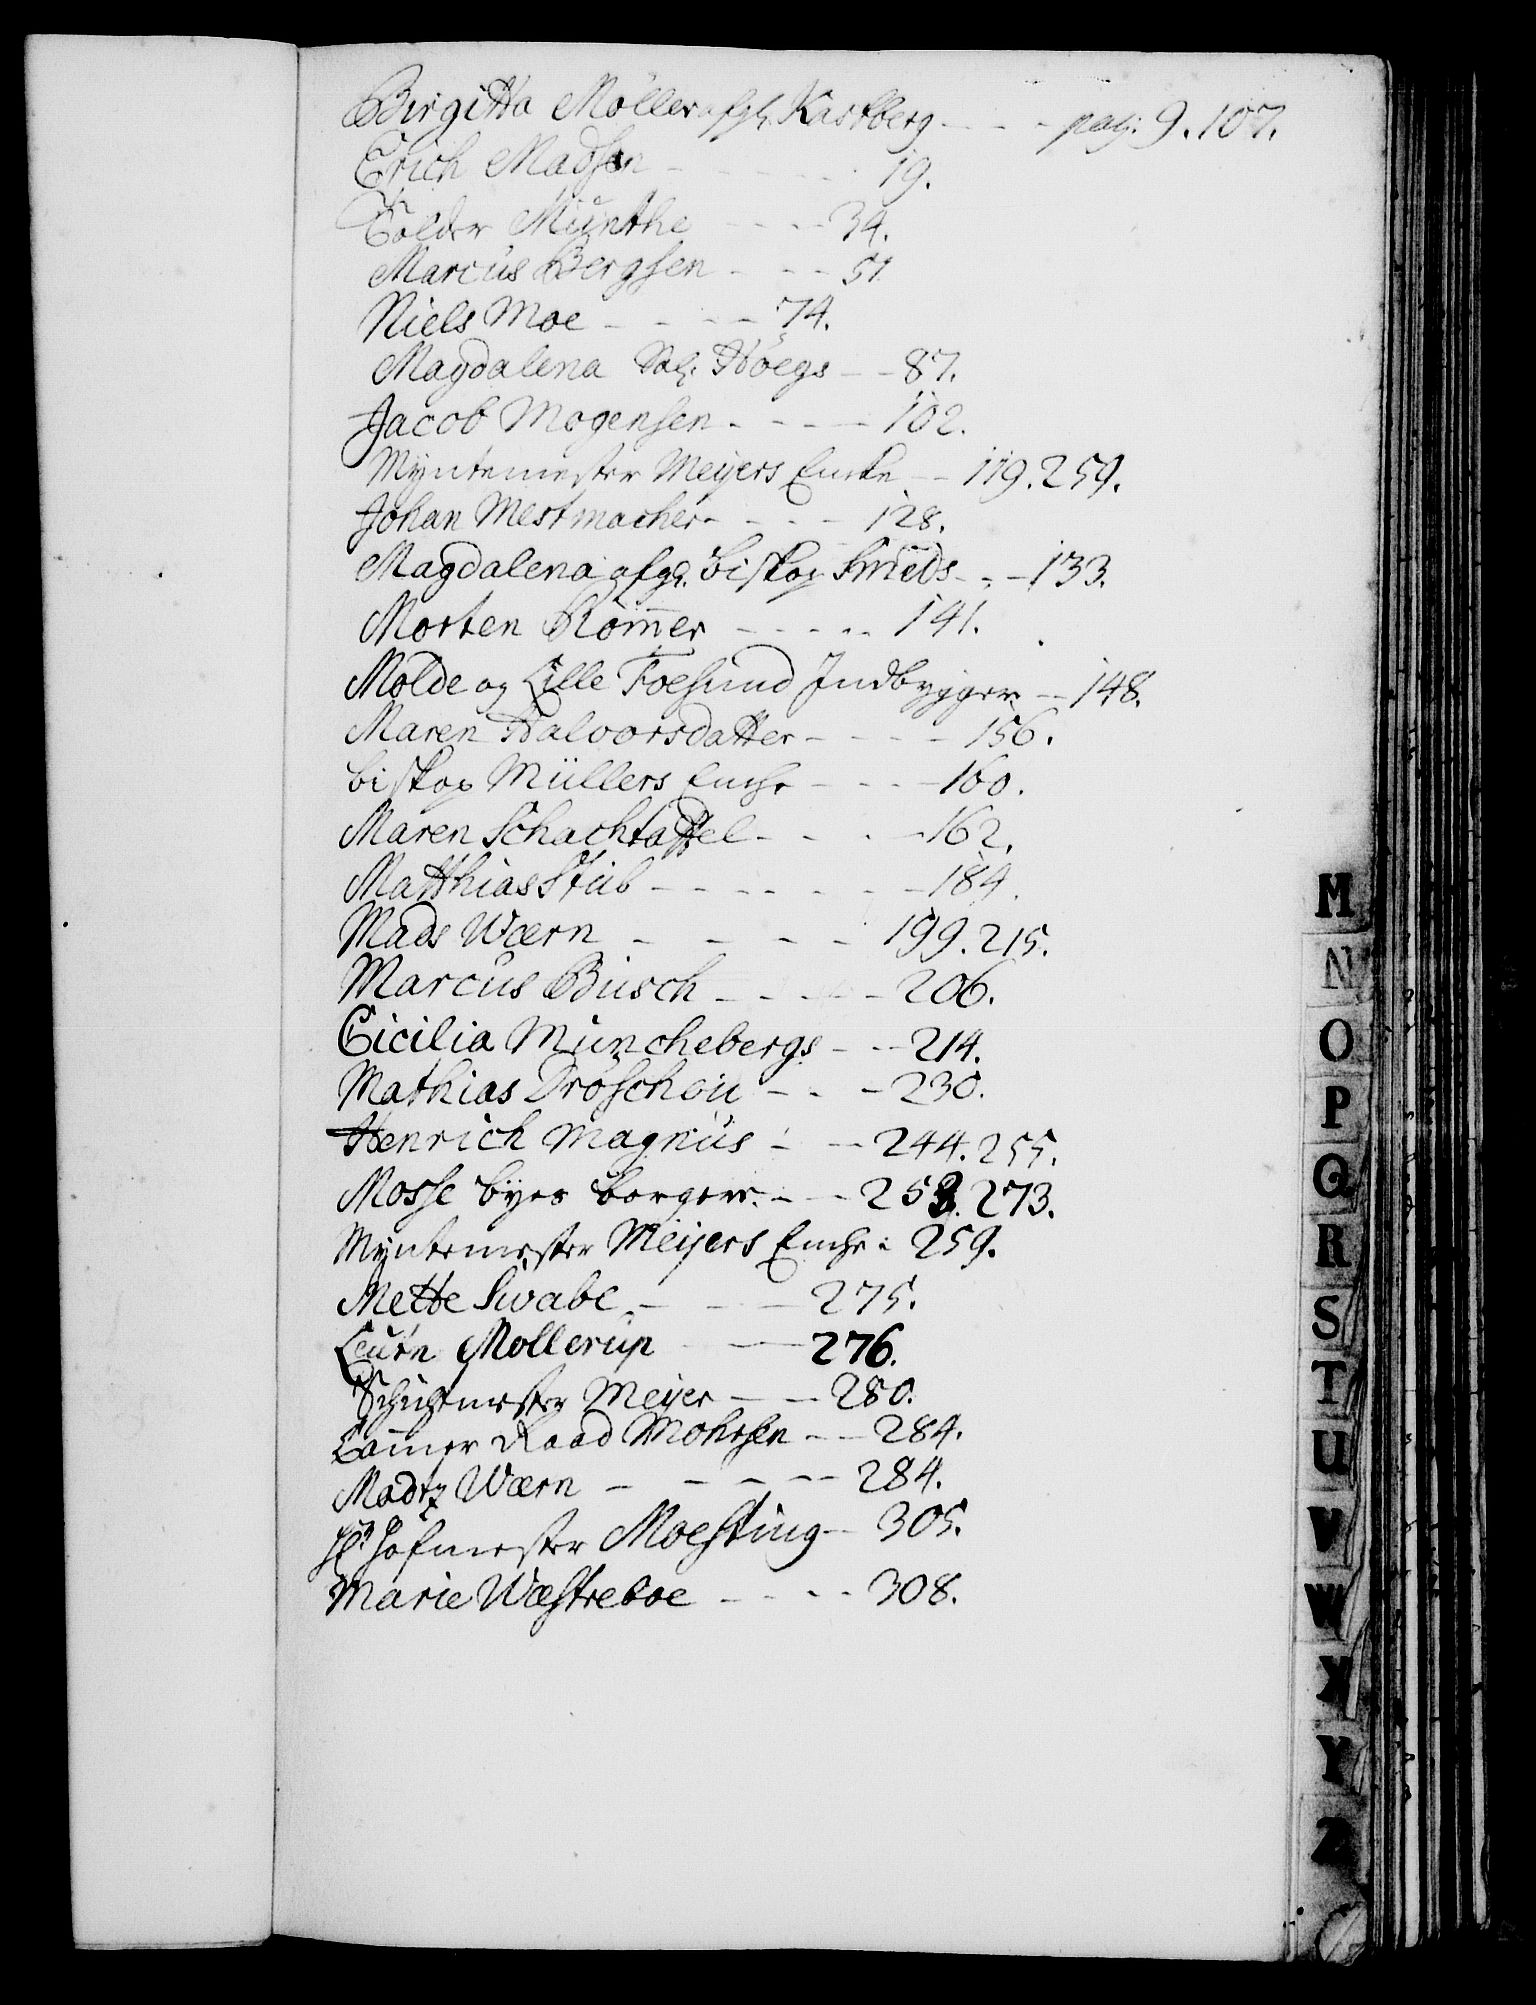 Birgitta Möller afgl. Kastberg - - - pag: 9. 107.
Erich Madsen - - - - - 19.
Colder Münthe - - - 34.
Marcus Bergsen - - - 51.
Niels Moe - - - - 74.
Magdalena Sal. Höegs - - 87.
Jacob Mogensen - - - - 102.
Myntemester Meyers Encke - - 119. 259.
Johan Mestmacher - - - - 128.
Magdalena afgg. biskop Smeds - - - 133.
Morten Römer - - - - - 141.
Molde og Lille Foesund Indbygger - - 148.
Maren Halvorsdatter - - - - 156.
biskop Müllers Enche - - - - 160.
Maren Schachtaffel - - - - 162.
Matthias Stub - - - - - - - 184.
Mads Wærn - - - - - 199. 215.
Marcus Büsch - - - - 206.
Cicilia Münchebergs - - - 214.
Mathias Dröschou - - - 230.
Henrich Magnüs - - - 244. 255.
Mosse byes borgere - - - 253. 273.
Myntemester Meijers Enche : 259.
Mette Swabe - - - 275.
Leutn Mollerup - - 276.
Schichtmester Meyer - - - 280.
Cammer Raad Mohrsen - - - 284.
Madtz Wærn - - - - - 284.
Hofmester Moesting - - 305.
Marie Wæstreboe - - - - 308.
M
N
O
P
Q
R
S
T
U
V
W
X
Y
Z